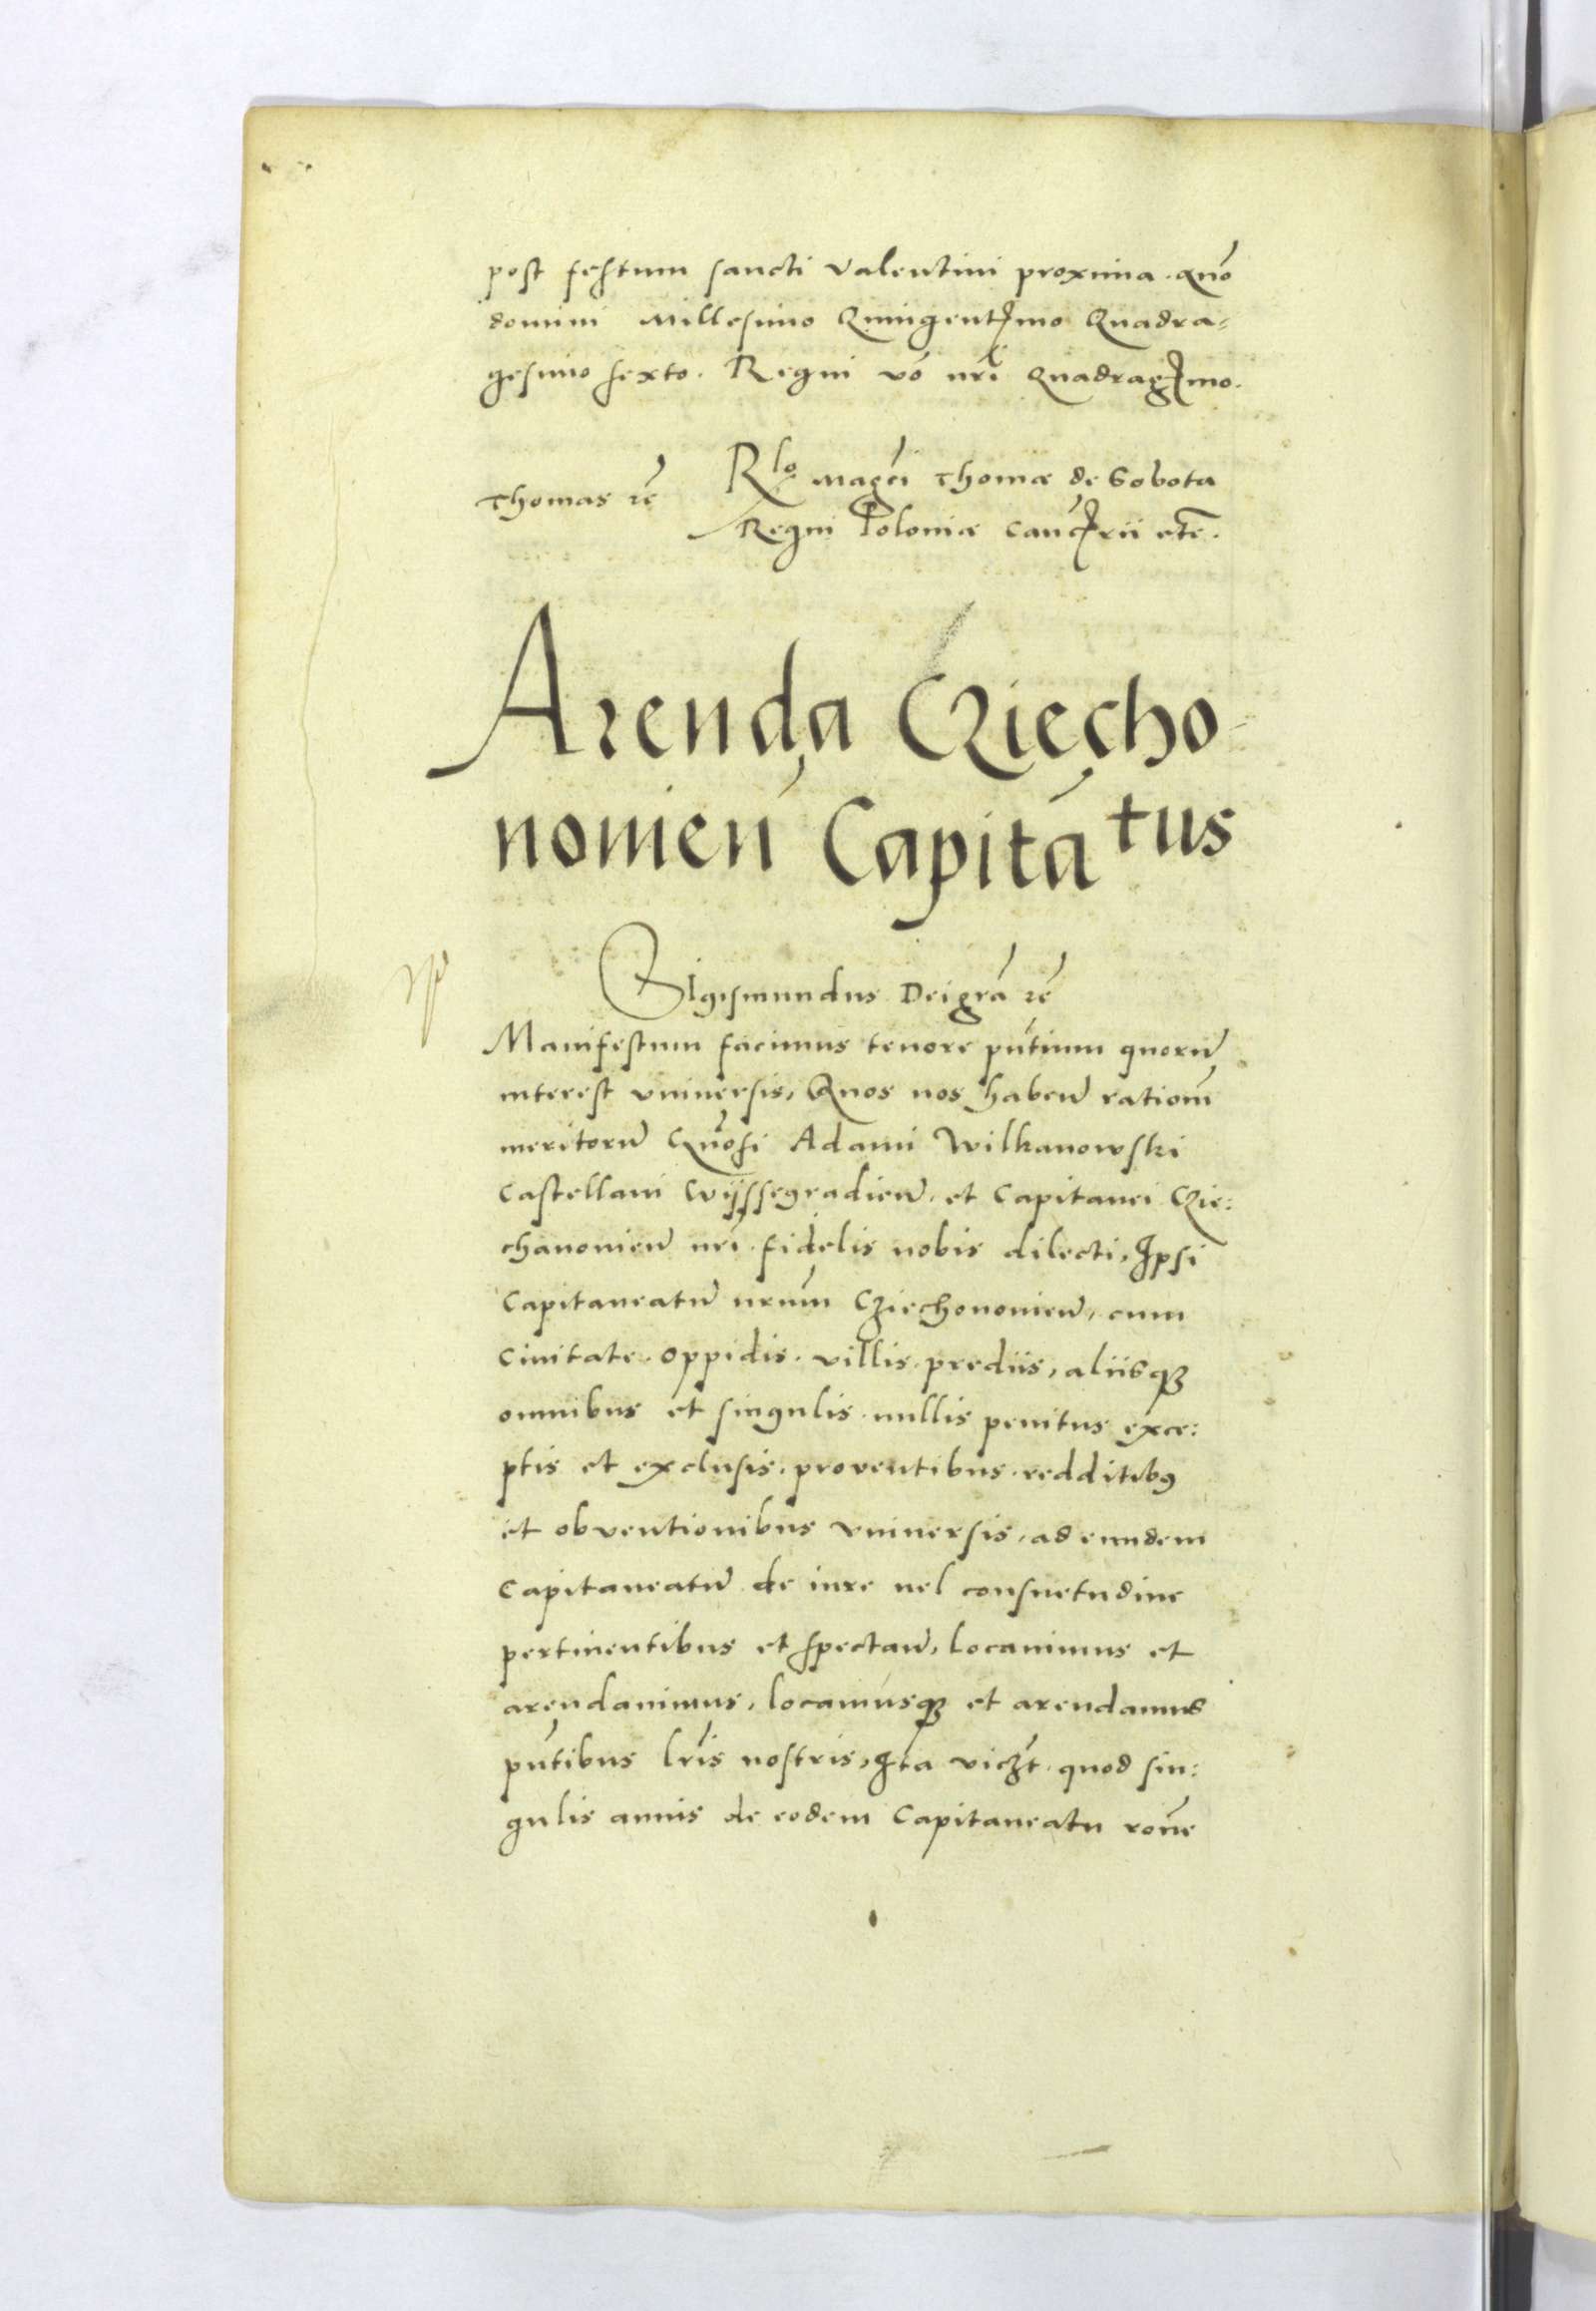 post festum sancti Valentini proxima. Año
domini Millesimo Quingentꝭmo Quadra=
gesimo sexto. Regni vō nr̄i Quadragꝭmo.
Thomas rc̄
Rlo magci Thomæ de Sobota
Regni Poloniæ Canꝯrii etc̄.
Arenda Cziecho-
nonien̄ Capitatus
Sigismundus Dei gr̄a rc̄
Manifestum facimus tenore pn̄tium quorū
interest vniversis, Quos nos haben̄ rationē
meritorū Gn̄osi Adami Wilkanowski
Castellani Wijssegradien̄. et Capitanei Czie:
chanonien̄ nr̄i. fidelis nobis dilecti, Ipsi
Capitaneatū nrum̄ Cziechononien̄, cum
Ciuitate. oppidis. villis. prediis, aliisqꝫ
omnibus et singulis. nullis penitus exce:
ptis et exclusis. proventibus. redditibꝰ
et obventionibus vniuersis, ad eundem
Capitaneatū de iure uel consuetudine
pertinentibus et spectan̄, locauimus et
arendauimus, locamusqꝫ et arendamus
pn̄tibus lr̄is nostris, Ita viczt̄. quod sin:
gulis annis de eodem Capitaneatu ron̄e